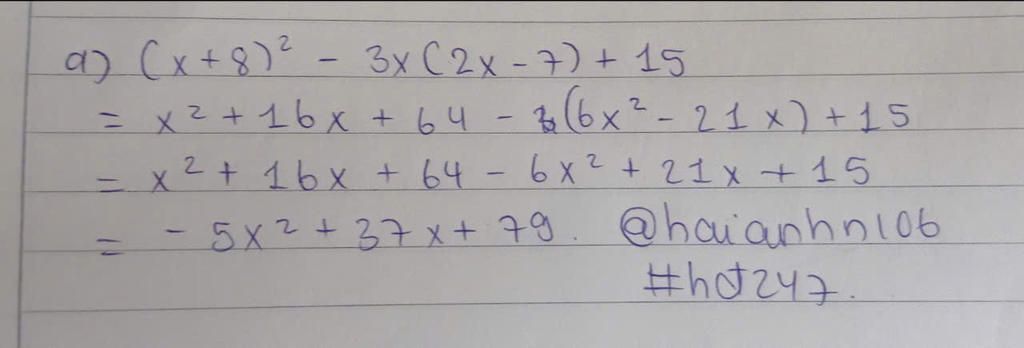 a) (x+8)² - 3x(2x-7)+15
= x² + 16x + 64 - (6x² - 21x) + 15
= x² + 16x + 64 - 6x² + 21x + 15
= - 5x² + 37x + 79. @haianhn106
#hot247.